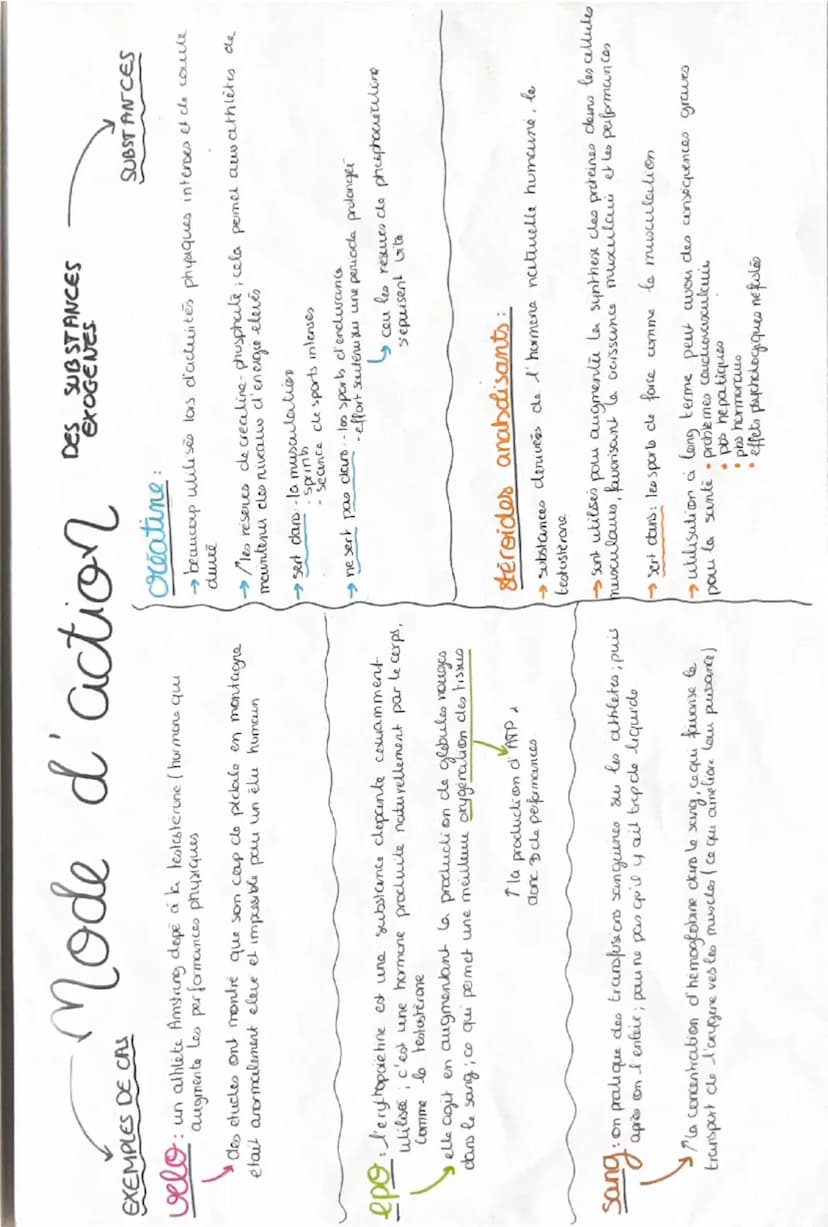 Mode d'action
DES SUBSTANCES
EXOGÈNES
EXEMPLES DE CAS
vélo : un athlète Amstrong dopé à la testostérone (hormone qui
augmente les performances physiques
des études ont montré que son coup de pédale en montagne
était anormalement élevé et impossible pour un être humain
epo : l'erythopoïétine est une substance dopante couramment
utilisée ; c'est une hormone produite naturellement par le corps,
comme la testostérone
elle agit en augmentant la production de globules rouges
dans le sang ; ce qui permet une meilleure oxygénation des tissus
↑ la production d'ATP ↓
donc de performances
sang : on pratique des transfusions sanguines sur les athlètes ; puis
après on l'enlève ; pour ne pas qu'il y ait trop de liquide
↑ la concentration d'hémoglobine dans le sang, ce qui favorise le
transport de l'oxygène vers les muscles (ce qui améliore leur puissance)
SUBSTANCES
créatine :
→ beaucoup utilisée lors d'activités physiques intenses et de courte
durée
→ ↑ les réserves de créatine-phosphate ; cela permet aux athlètes de
maintenir des niveaux d'énergie élevés
→ sert dans : - la musculation
- sprints
- séance de sports intenses
→ ne sert pas dans : - les sports d'endurance
- effort soutenu sur une période prolonger
↳ car les réserves de phosphocréatine
s'épuisent vite
stéroïdes anabolisants :
→ substances dérivées de l'hormone naturelle humaine, la
testostérone
→ sont utilisés pour augmenter la synthèse des protéines dans les cellules
musculaires, favorisant la croissance musculaire et les performances
→ sert dans : les sports de force comme la musculation
→ utilisation à long terme peut avoir des conséquences graves
pour la santé : • problèmes cardiovasculaires
• pbs hépatiques
• pbs hormonaux
• effets psychologiques néfastes